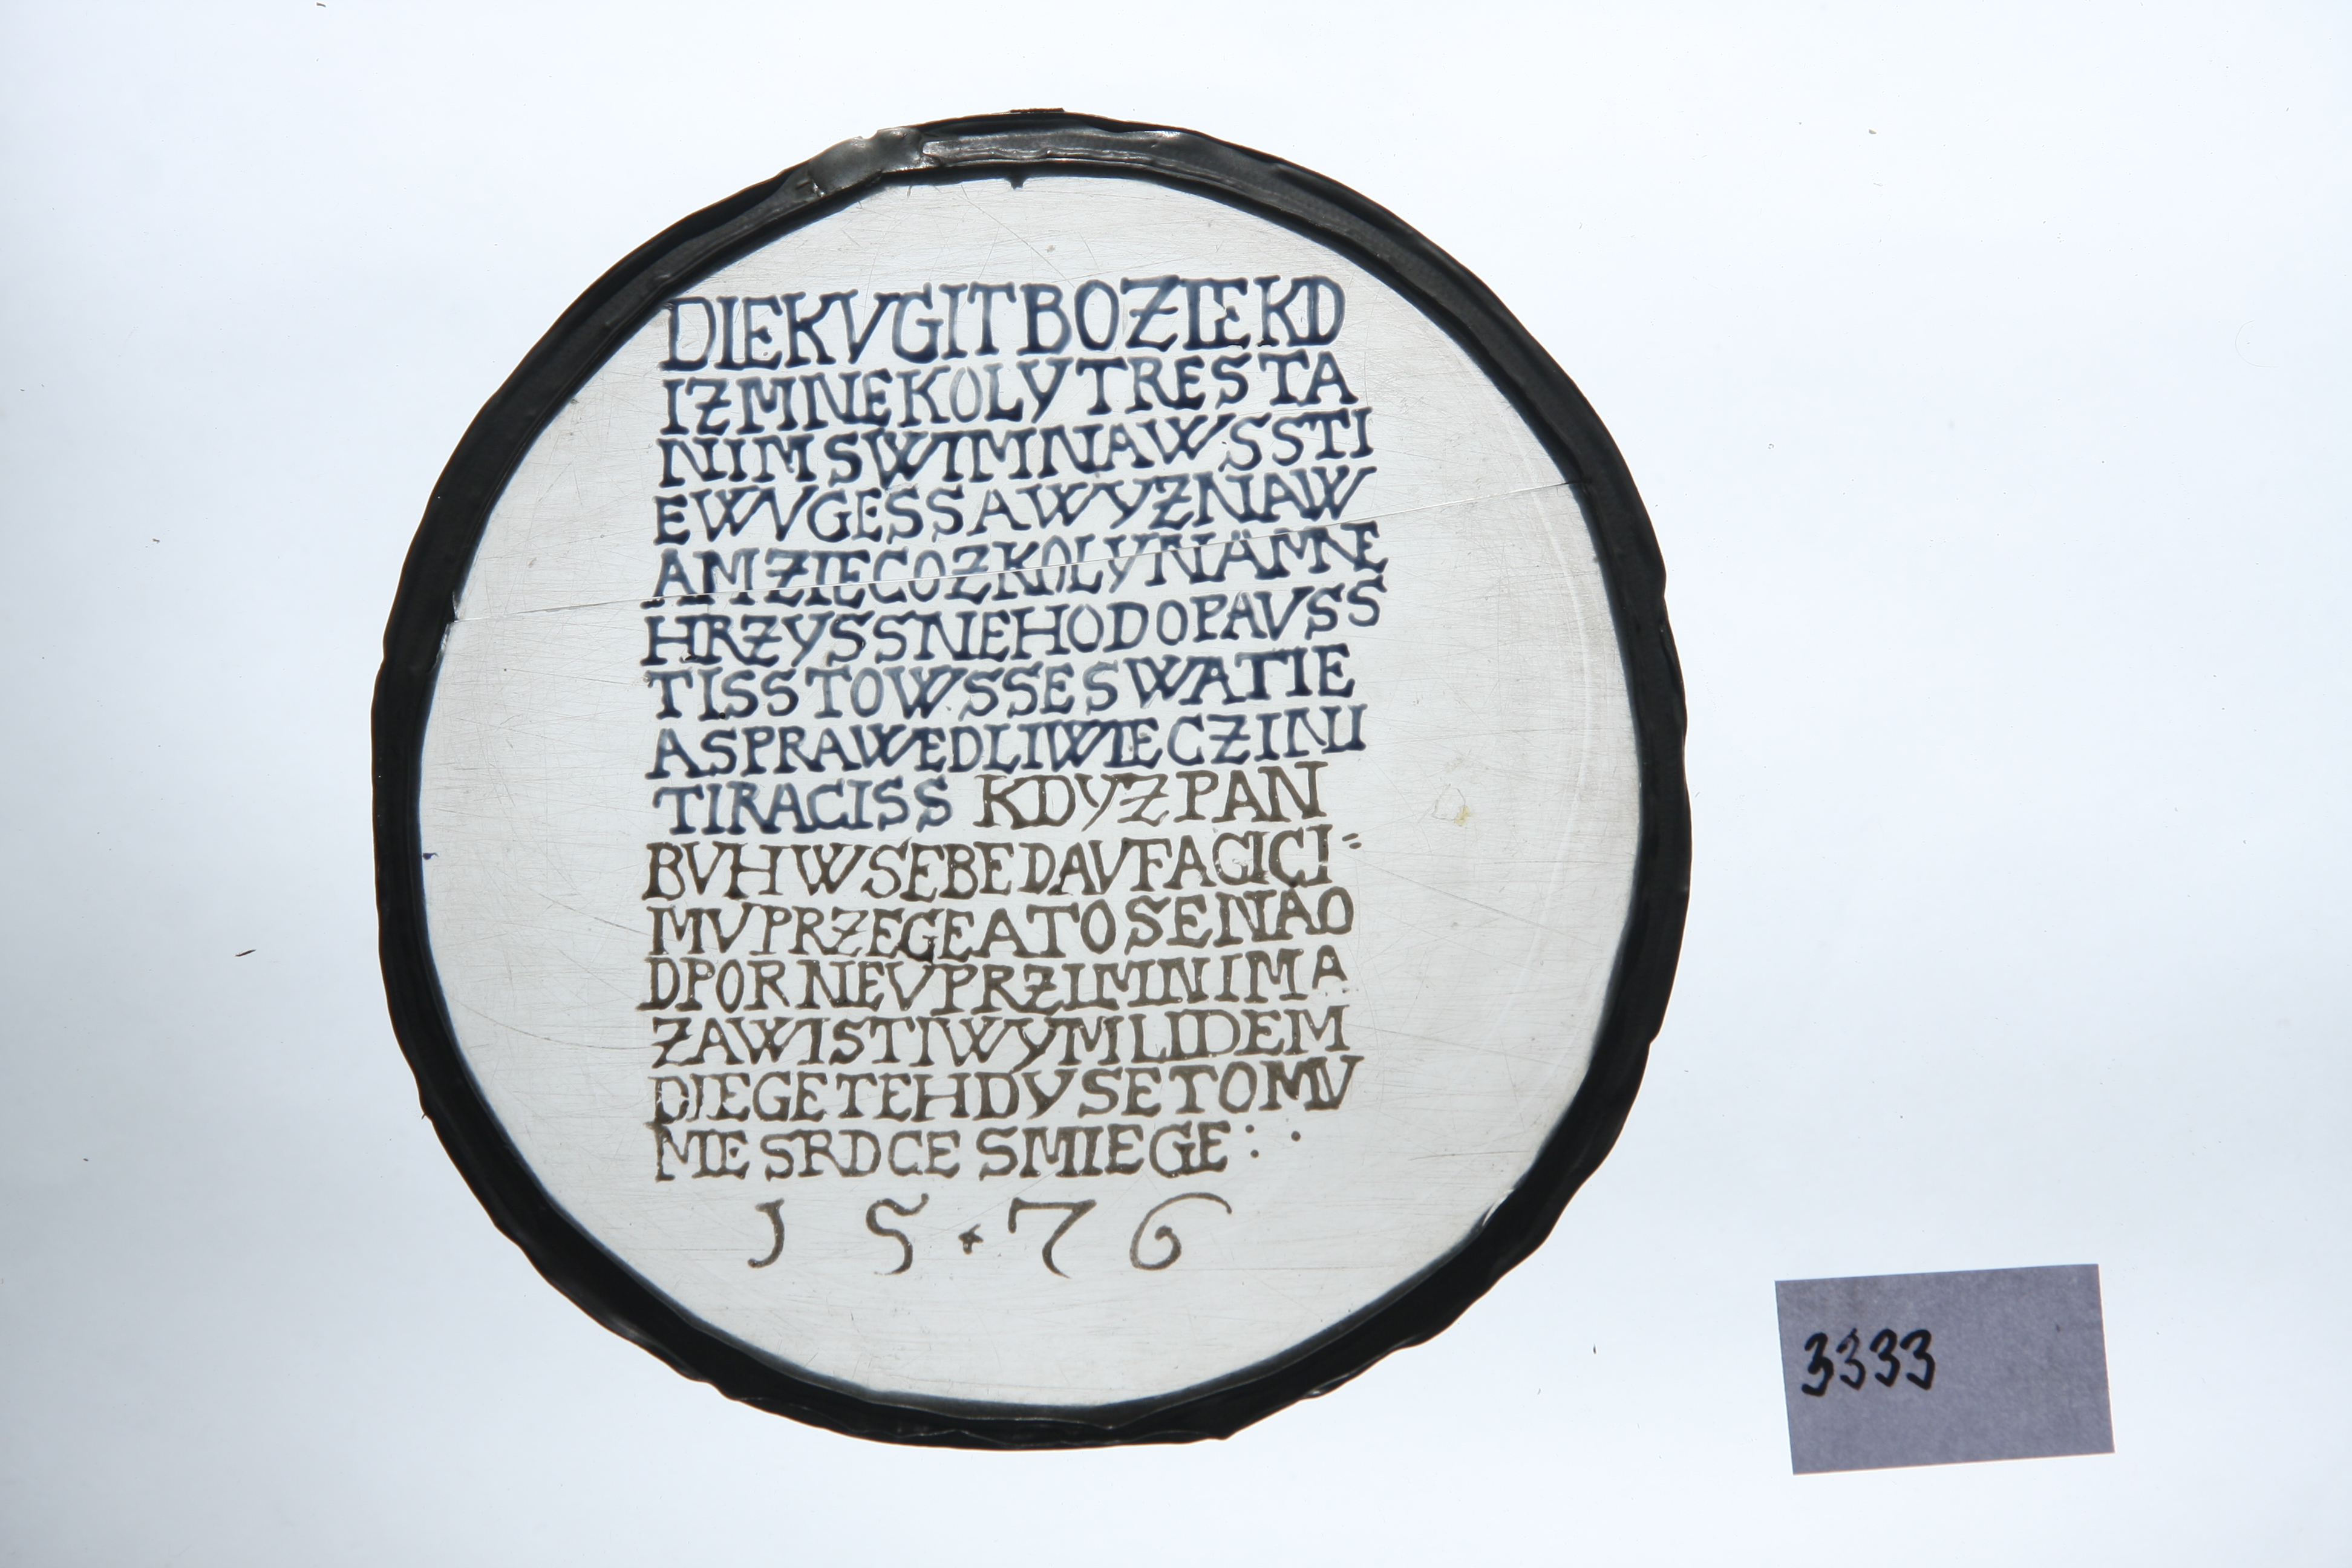 DIEKVGITBOZIEKD
IZMNEKOLYTRESTA
NIMSWIMNAWSSTI
EWVGESSAWYZNAW
AMZIECOZKOLYNÄMNE
HRZYSSNEHODOPAVSS
TISSTOWSSESWATIE
ASPRAWEDLIWIECZINI
TIRACISS KDYZPAN
BVHWSEBEDAVFAGICI=
MVPRZEGEATOSENAO
DPORNEVPRZIMNIMA
ZAWISTIWYMLIDEM
DIEGETEHDYSETOMV
MIE SRDCE SMIEGE:·
15·76
3333